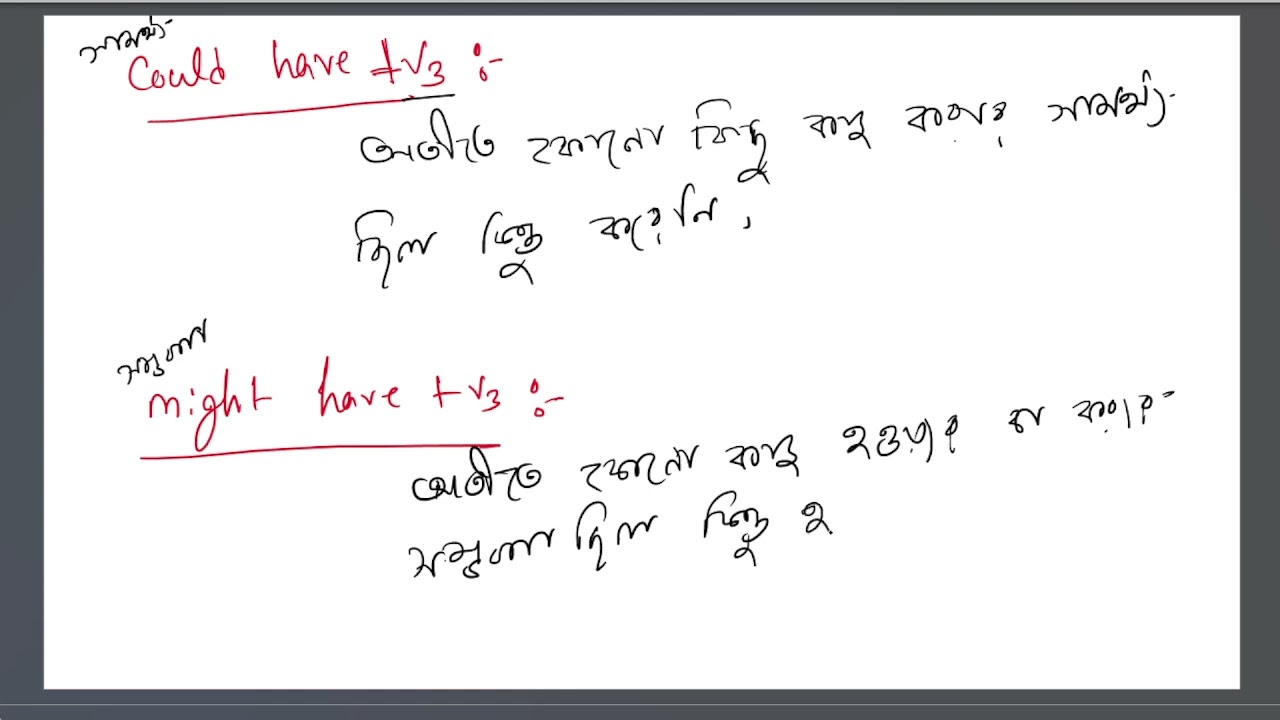 সামর্থ্য
Could have + V3 :-
অতীতে কোনো কিছু কাজ করার সামর্থ্য
ছিল কিন্তু করেনি,
সম্ভবনা
might have + V3 :-
অতীতে কোনো কাজ হওয়ার বা করার
সম্ভবনা ছিল কিন্তু হ